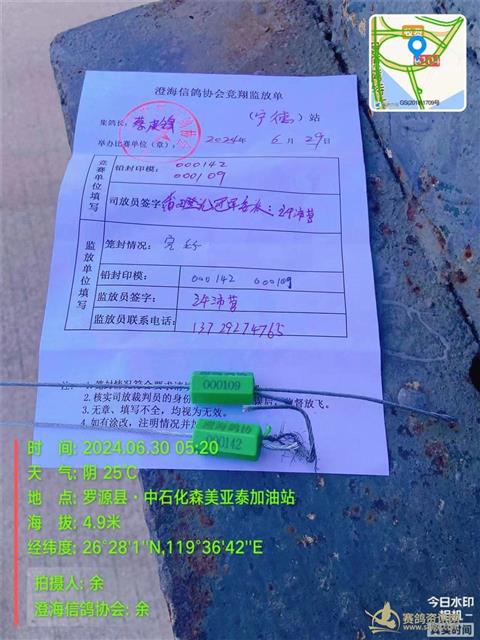 澄海信鸽协会竞翔监放单
集鸽长:
(宁德)站
举办比赛单位(章):
2024年 6月 29日
竞赛单位填写
铅封印模:
000142
000109
司放员签字
监放单位填写
笼封情况: 完好
铅封印模: 000142 000109
监放员签字:
监放员联系电话: 13729274765
注:
2.核实司放裁判员的身份
督放飞。
3.无章、填写不全,均视为无效。
4.如有涂改,注明情况并
000109
澄海鸽协
000142
时 间: 2024.06.30 05:20
天 气: 阴 25℃
地 点: 罗源县·中石化森美亚泰加油站
海 拔: 4.9米
经纬度: 26°28'1''N,119°36'42''E
拍摄人: 余
澄海信鸽协会: 余
今日水印
相机
真实时间
赛鸽资讯网